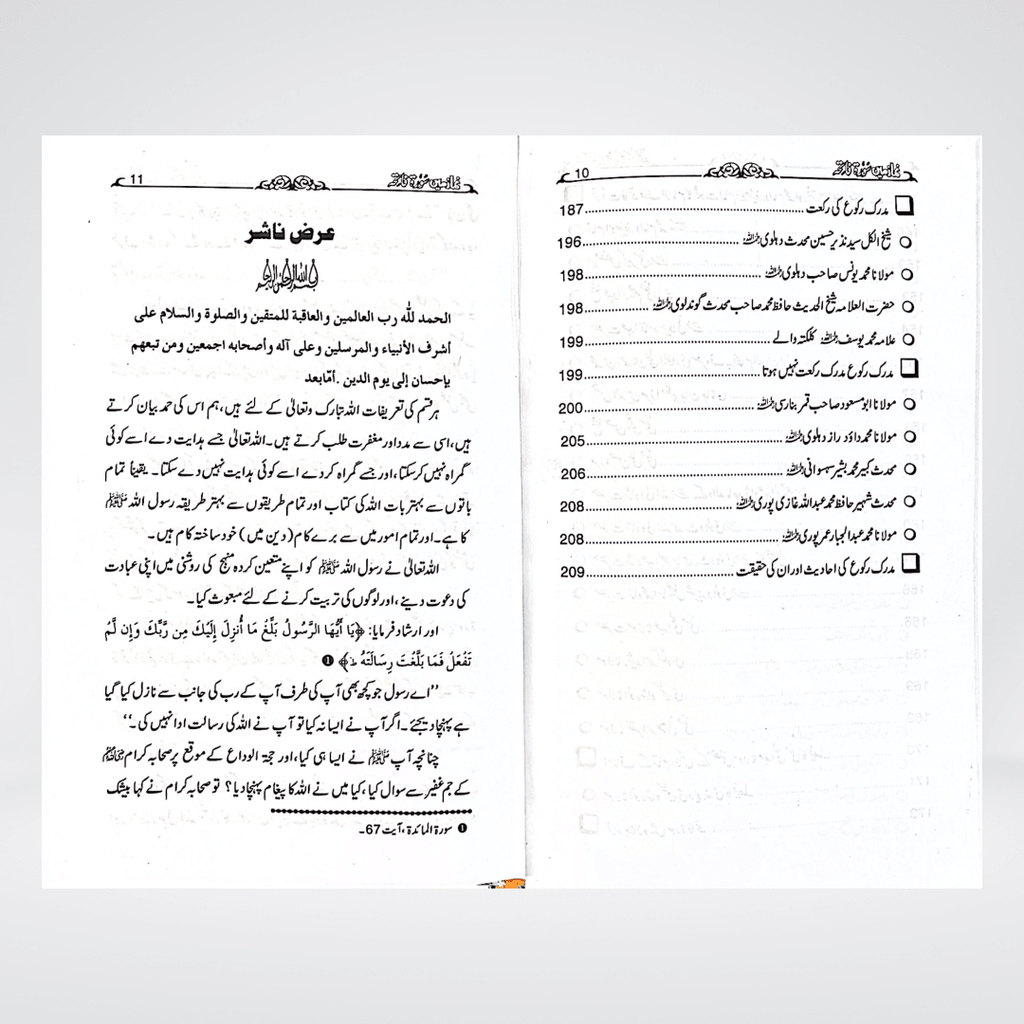 نماز میں سورۃ فاتحہ 10
مدرک رکوع کی رکعت 187
شیخ الکل سید نذیر حسین محدث دہلوی رحمہ اللہ 196
مولانا محمد یونس صاحب دہلوی رحمہ اللہ 198
حضرت العلامہ شیخ الحدیث حافظ محمد صاحب محدث گوندلوی رحمہ اللہ 198
علامہ محمد یوسف رحمہ اللہ کلکتہ والے 199
مدرک رکوع مدرک رکعت نہیں ہوتا 199
مولانا ابو مسعود صاحب قمر بنارسی رحمہ اللہ 200
مولانا محمد داؤد راز دہلوی رحمہ اللہ 205
محدث کبیر محمد بشیر سہسوانی رحمہ اللہ 206
محدث شہیر حافظ محمد عبداللہ غازی پوری رحمہ اللہ 208
مولانا محمد عبدالجبار عمر پوری رحمہ اللہ 208
مدرک رکوع کی احادیث اور ان کی حقیقت 209
نماز میں سورۃ فاتحہ 11
عرض ناشر
بسم اللہ الرحمن الرحیم
الحمد للّٰہ رب العالمین والعاقبة للمتقین والصلوة والسلام علی
أشرف الأنبیاء والمرسلین وعلی آله وأصحابه اجمعین ومن تبعهم
بإحسان إلی یوم الدین .أمّابعد
ہر قسم کی تعریفات اللہ تبارک وتعالیٰ کے لئے ہیں، ہم اس کی حمد بیان کرتے
ہیں، اسی سے مدد اور مغفرت طلب کرتے ہیں۔ اللہ تعالیٰ جسے ہدایت دے اسے کوئی
گمراہ نہیں کرسکتا، اور جسے گمراہ کردے اسے کوئی ہدایت نہیں دے سکتا۔ یقیناً تمام
باتوں سے بہتر بات اللہ کی کتاب اور تمام طریقوں سے بہتر طریقہ رسول اللہ ﷺ
کا ہے۔ اور تمام امور میں سے برے کام (دین میں) خود ساختہ کام ہیں۔
اللہ تعالیٰ نے رسول اللہ ﷺ کو اپنے متعین کردہ منہج کی روشنی میں اپنی عبادت
کی دعوت دینے، اور لوگوں کی تربیت کرنے کے لئے مبعوث کیا۔
اور ارشاد فرمایا: ﴿يَا أَيُّهَا الرَّسُولُ بَلِّغْ مَا أُنزِلَ إِلَيْكَ مِن رَّبِّكَ وَإِن لَّمْ
تَفْعَلْ فَمَا بَلَّغْتَ رِسَالَتَهُ ط﴾ ❶
’’اے رسول جو کچھ بھی آپ کی طرف آپ کے رب کی جانب سے نازل کیا گیا
ہے پہنچا دیجئے۔ اگر آپ نے ایسا نہ کیا تو آپ نے اللہ کی رسالت ادا نہیں کی۔‘‘
چنانچہ آپ ﷺ نے ایسا ہی کیا، اور حجۃ الوداع کے موقع پر صحابہ کرام ﷺ
کے جم غفیر سے سوال کیا، کیا میں نے اللہ کا پیغام پہنچا دیا؟ تو صحابہ کرام نے کہا بیشک
❶ سورۃ المائدۃ، آیت 67۔